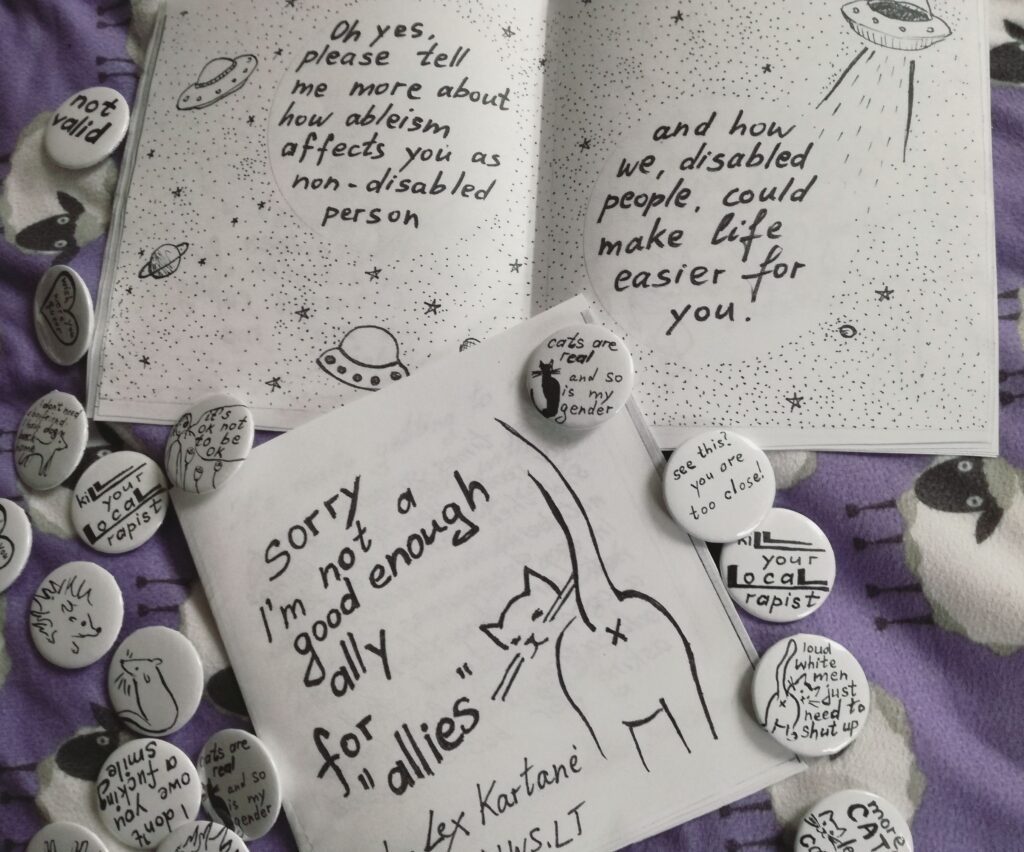 Oh yes,
please tell
me more about
how ableism
affects you as
non-disabled
person
and how
we, disabled
people, could
make life
easier for
you.
not
valid
it's
ok not
to be
ok
kiLL
your
LocaL
rapist
cats are
real
and so
is my
gender
see this?
you are
too close!
kiLL
your
LocaL
rapist
sorry
I'm not a
good enough
ally
for
"allies"
Lex Kartanė
loud
white
men
just
need to
shut up
I don't
owe you
a fucking
smile
cats are
real
and so
is my
gender
more
CAT